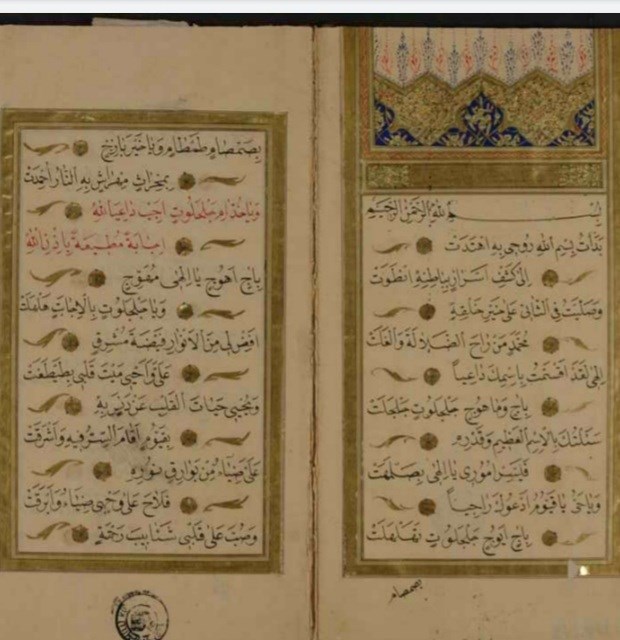 بِسْمِ اللهِ الرَّحْمٰنِ الرَّحِيمِ
بَدَأْتُ بِبِسْمِ اللهِ رُوحِي بِهِ اهْتَدَتْ
اِلَى كَشْفِ اَسْرَارٍ بِبَاطِنِهِ انْطَوَتْ
وَصَلَّيْتُ فِي الثَّانِي عَلَى خَيْرِ خَلْقِهِ
مُحَمَّدٍ مَنْ زَاحَ الضَّلَالَةَ وَالْغَلَتْ
اِلٰهِي لَقَدْ اَقْسَمْتُ بِاسْمِكَ دَاعِيًا
بِآجٍ وَمَاهُوجٍ جَلْجَلُوتٍ جَلْجَلَتْ
سَئَلْتُكَ بِالْاِسْمِ الْعَظِيمِ وَقَدْرِهِ
فَيَسِّرْ اُمُورِي يَا اِلٰهِي بِصَلْمَهَتْ
وَيَا حَيُّ يَا قَيُّومُ اَدْعُوكَ رَاجِيًا
بِآجٍ اَيُوجٍ جَلْجَلُوتٍ
بصمصام
بِصَمْصَامٍ طَمْطَامٍ وَيَا خَيْرَ بَازِخٍ
بِهِ النَّارُ اُخْمِدَتْ
اَجِبْ دَاعِيَ اللهِ
اِجَابَةً مُطِيعَةً بِاِذْنِ اللهِ
بِآجٍ اَهُوجٍ يَا اِلٰهِي مُهَوِّجٍ
وَيَا جَلْجَلُوتٍ بِالْاِجَابَاتِ هَلْهَلَتْ
اَفِضْ لِي مِنَ الْاَنْوَارِ فَيْضَةَ مُشْرِقٍ
عَلَيَّ وَاَحْيِ مَيْتَ قَلْبِي بِطَيْطَغَتْ
حَيَاتَ الْقَلْبِ مِنْ دَنَسٍ بِهِ
بِقَيُّومٍ اَقَامَ السِّرَّ فِيهِ وَاَشْرَقَتْ
عَلَيَّ ضِيَاءٌ مِنْ بَوَارِقِ نُورِهِ
فَلَاحَ عَلَى وَجْهِي ضِيَاءٌ وَاَبْرَقَتْ
وَصُبَّ عَلَى قَلْبِي شَئَابِيبَ رَحْمَةٍ